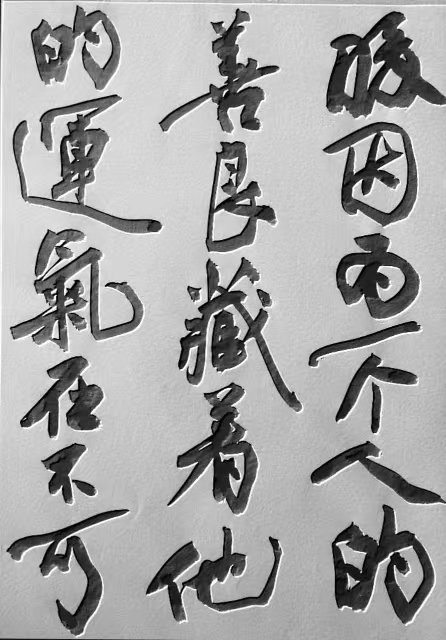 暖因而一个人的
善良藏着他
的運氣在不可